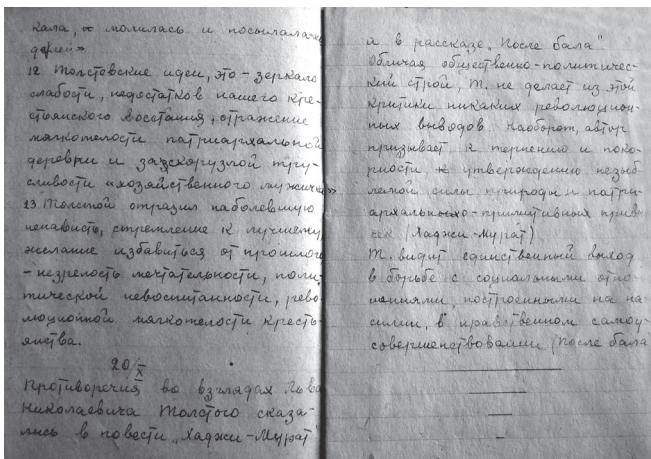 кала, молилась и посылала
12. Толстовские идеи, это – зеркало
слабости, недостатков нашего кре-
стьянского восстания, отражение
мягкотелости патриархальной
деревни и заскорузлой тру-
сливости «хозяйственного мужичка»
13. Толстой отразил наболевшую
ненависть, стремление к лучшему,
желание избавиться от прошлого
– незрелость мечтательности, поли-
тической невоспитанности, рево-
люционной мягкотелости кресть-
янства.
20/X
Противоречия во взглядах Льва
Николаевича Толстого сказа-
лись в повести „Хаджи-Мурат"
и в рассказе „После бала"
Обличая общественно-политичес-
кий строй, Т. не делает из этой
критики никаких революцион-
ных выводов. Наоборот, автор
призывает к терпению и поко-
рности, к утверждению незыб-
лемой силы природы и патри-
архально-примитивных привы-
чек (Хаджи-Мурат)
Т. видит единственный выход
в борьбе с социальными отно-
шениями, построенными на на-
силии, в нравственном самоу-
совершенствовании (После бала